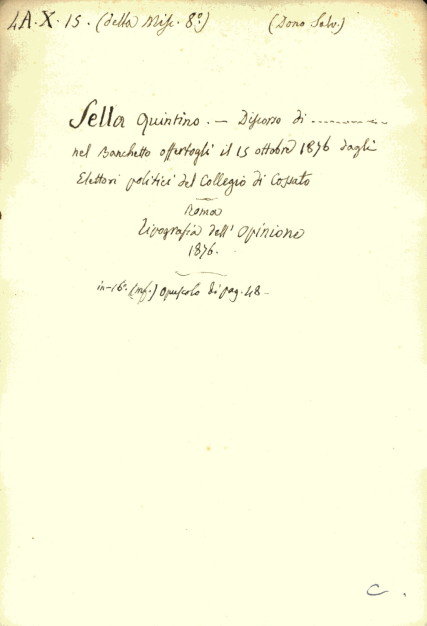 4A.X.15. (della Misc. 8º) (Dono Salv.)
Sella Quintino. — Discorso di ...........
nel Banchetto offertogli il 15 ottobre 1876 dagli
Elettori politici del Collegio di Cossato
Roma
Tipografia dell'Opinione
1876.
in-16º (mf.) opuscolo di pag. 48 -
C.